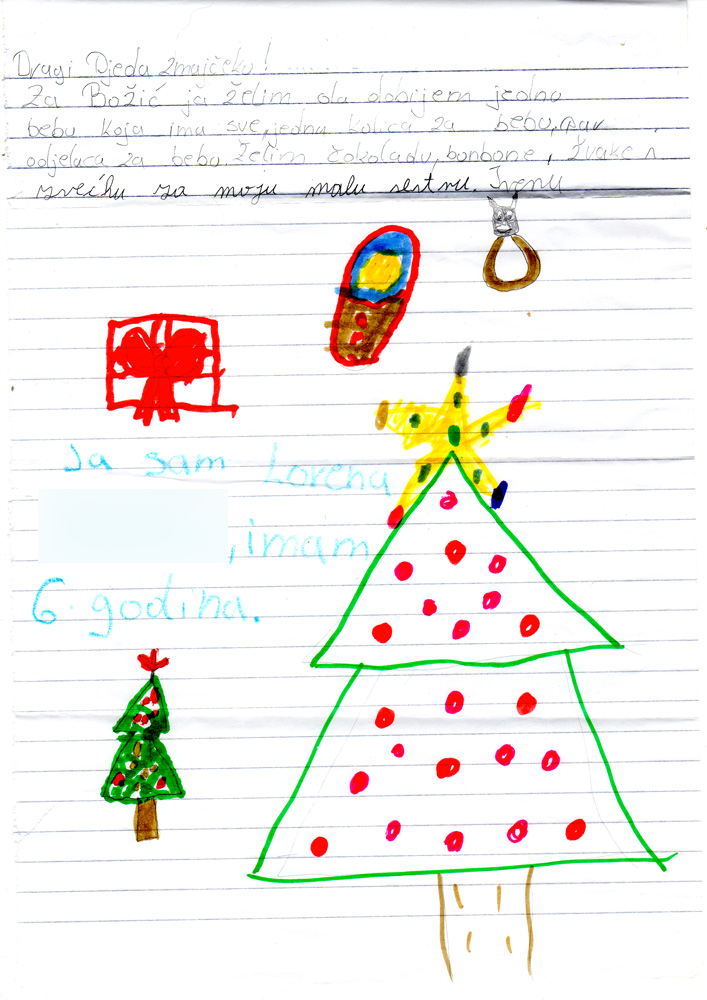 Dragi Djeda 2majčeku!
Za Božić ja želim da dobijem jednu
bebu koja ima sve, jedna kolica za bebu, par
odjelaca za bebu. Želim čokoladu, bonbone, žvake
za moju malu sestru. Irenu
Ja sam Lorena
, imam
6. godina.